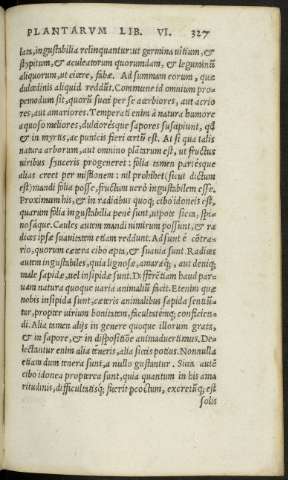 PLANTARVM LIB. VI. 327
lata, ingustabilia relinquantur: ut germina uitium, &
stypitum, & aculeatorum quorundam, & leguminũ
aliquorum, ut cicere, fabæ. Ad summam eorum, quæ
dulcedinis aliquid reddũt. Commune id omnium pro-
pemodum sit, quorũ succi per se acerbiores, aut acrio
res, aut amariores. Temperati enim à natura humore
aquoso meliores, dulcioresque sapores suscipiunt, qđ
& in myrtis, ac punicis fieri certũ est. At si qua talis
natura arborum, aut omnino plãtarum est, ut fructus
uiribus synceris progeneret: folia tamen partésque
alias creet per mistionem: nil prohibet (sicut dictum
est) mandi folia posse, fructum uerò ingustabilem esse.
Proximum his, & in radicibus quoq; cibo idoneis est,
quarum folia ingustabilia penè sunt, utpote sicca, spi-
nosáque. Caules autem mandi nimirum possunt, & ra
dices ipsæ suauitatem etiam reddunt. Adsunt è cõtra-
rio, quorum cætera cibo apta, & suauia sunt. Radices
autem ingustabiles, quia lignosæ, amaræq; , aut deniq;
male sapidæ, uel insipidæ sunt. Differẽtiam haud par-
uam natura quoque uaria animaliũ facit. Etenim quæ
nobis insipida sunt, cæteris animalibus sapida sentiũ-
tur, propter uirium bonitatem, facultatémq; conficien-
di. Alia tamen alijs in genere quoque illorum grata,
& in sapore, & in dispositiõe animaduertimus. De-
lectantur enim alia teneris, alia siccis potius. Nonnulla
etiam dum tenera sunt, a nullo gustantur. Sunt autẽ
cibo idonea propterea sunt, quia quantum in his ama
ritudinis, difficultatisq; fuerit pcoctum, excretũq; est
solis